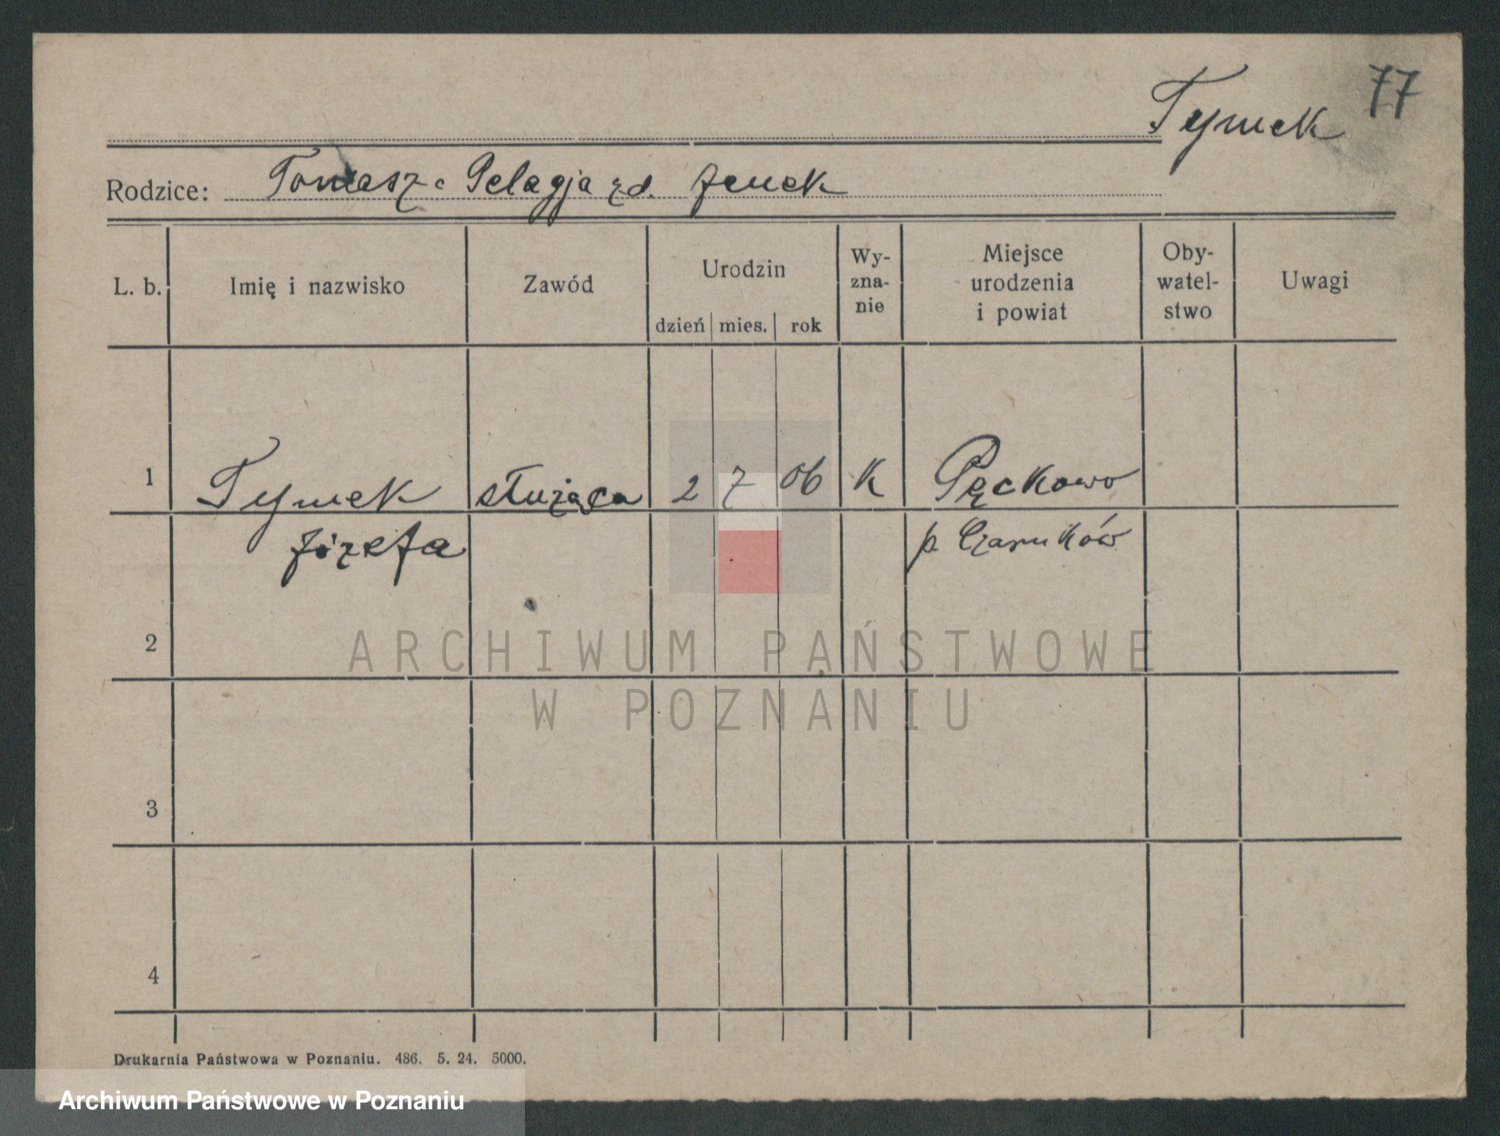 77
Tymek
Rodzice: Tomasz Pelagja zd. Jenek
L. b. Imię i nazwisko Zawód Urodzin dzień mies. rok Wy-zna-nie Miejsce urodzenia i powiat Oby-watel-stwo Uwagi
1 Tymek służąca 2 7 06 K Pęckowo
Józefa p. Czarnków
2
ARCHIWUM PAŃSTWOWE
W POZNANIU
3
4
Drukarnia Państwowa w Poznaniu. 486. 5. 24. 5000.
Archiwum Państwowe w Poznaniu